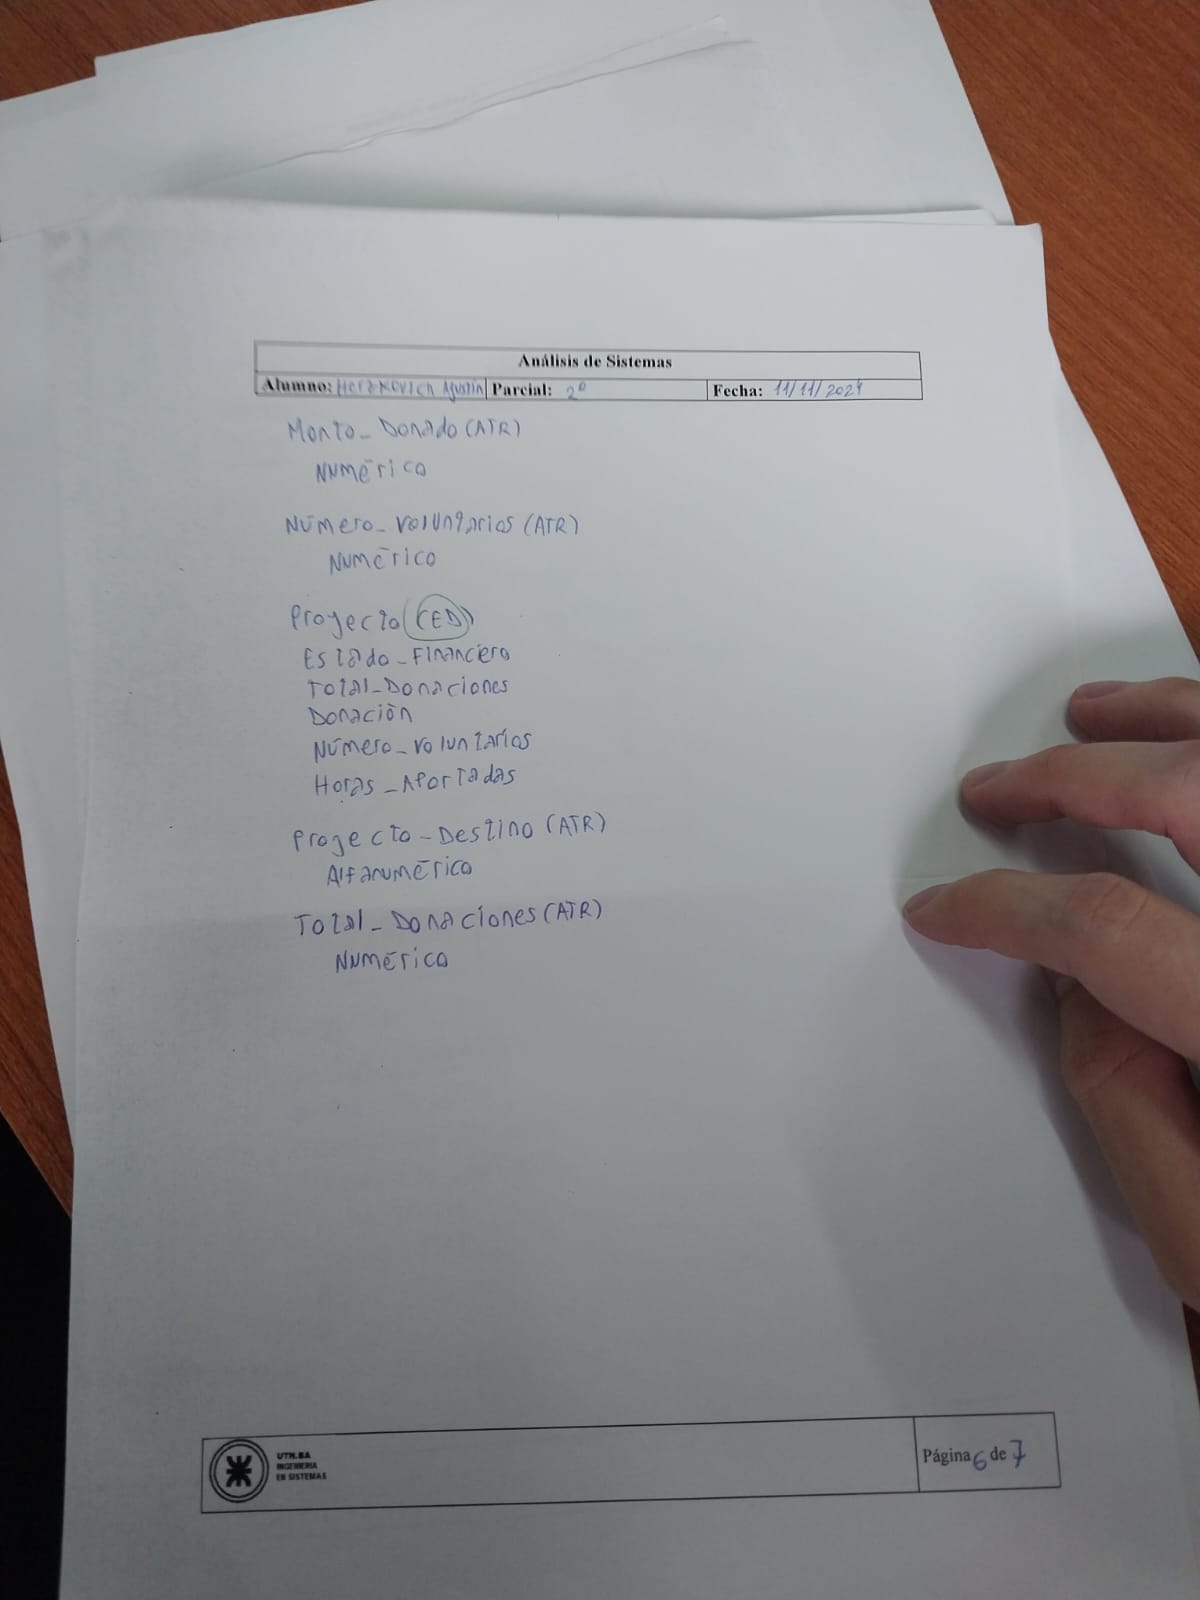 Análisis de Sistemas
Alumno: Herakovich Agustín Parcial: 2º Fecha: 11/11/2024
Monto_Donado (ATR)
Numérico
Número_Voluntarios (ATR)
Numérico
Proyecto (ED)
Estado_Financiero
Total_Donaciones
Donación
Número_Voluntarios
Horas_Aportadas
Proyecto_Destino (ATR)
Alfanumérico
Total_Donaciones (ATR)
Numérico
UTN.BA
INGENIERIA
EN SISTEMAS
Página 6 de 7